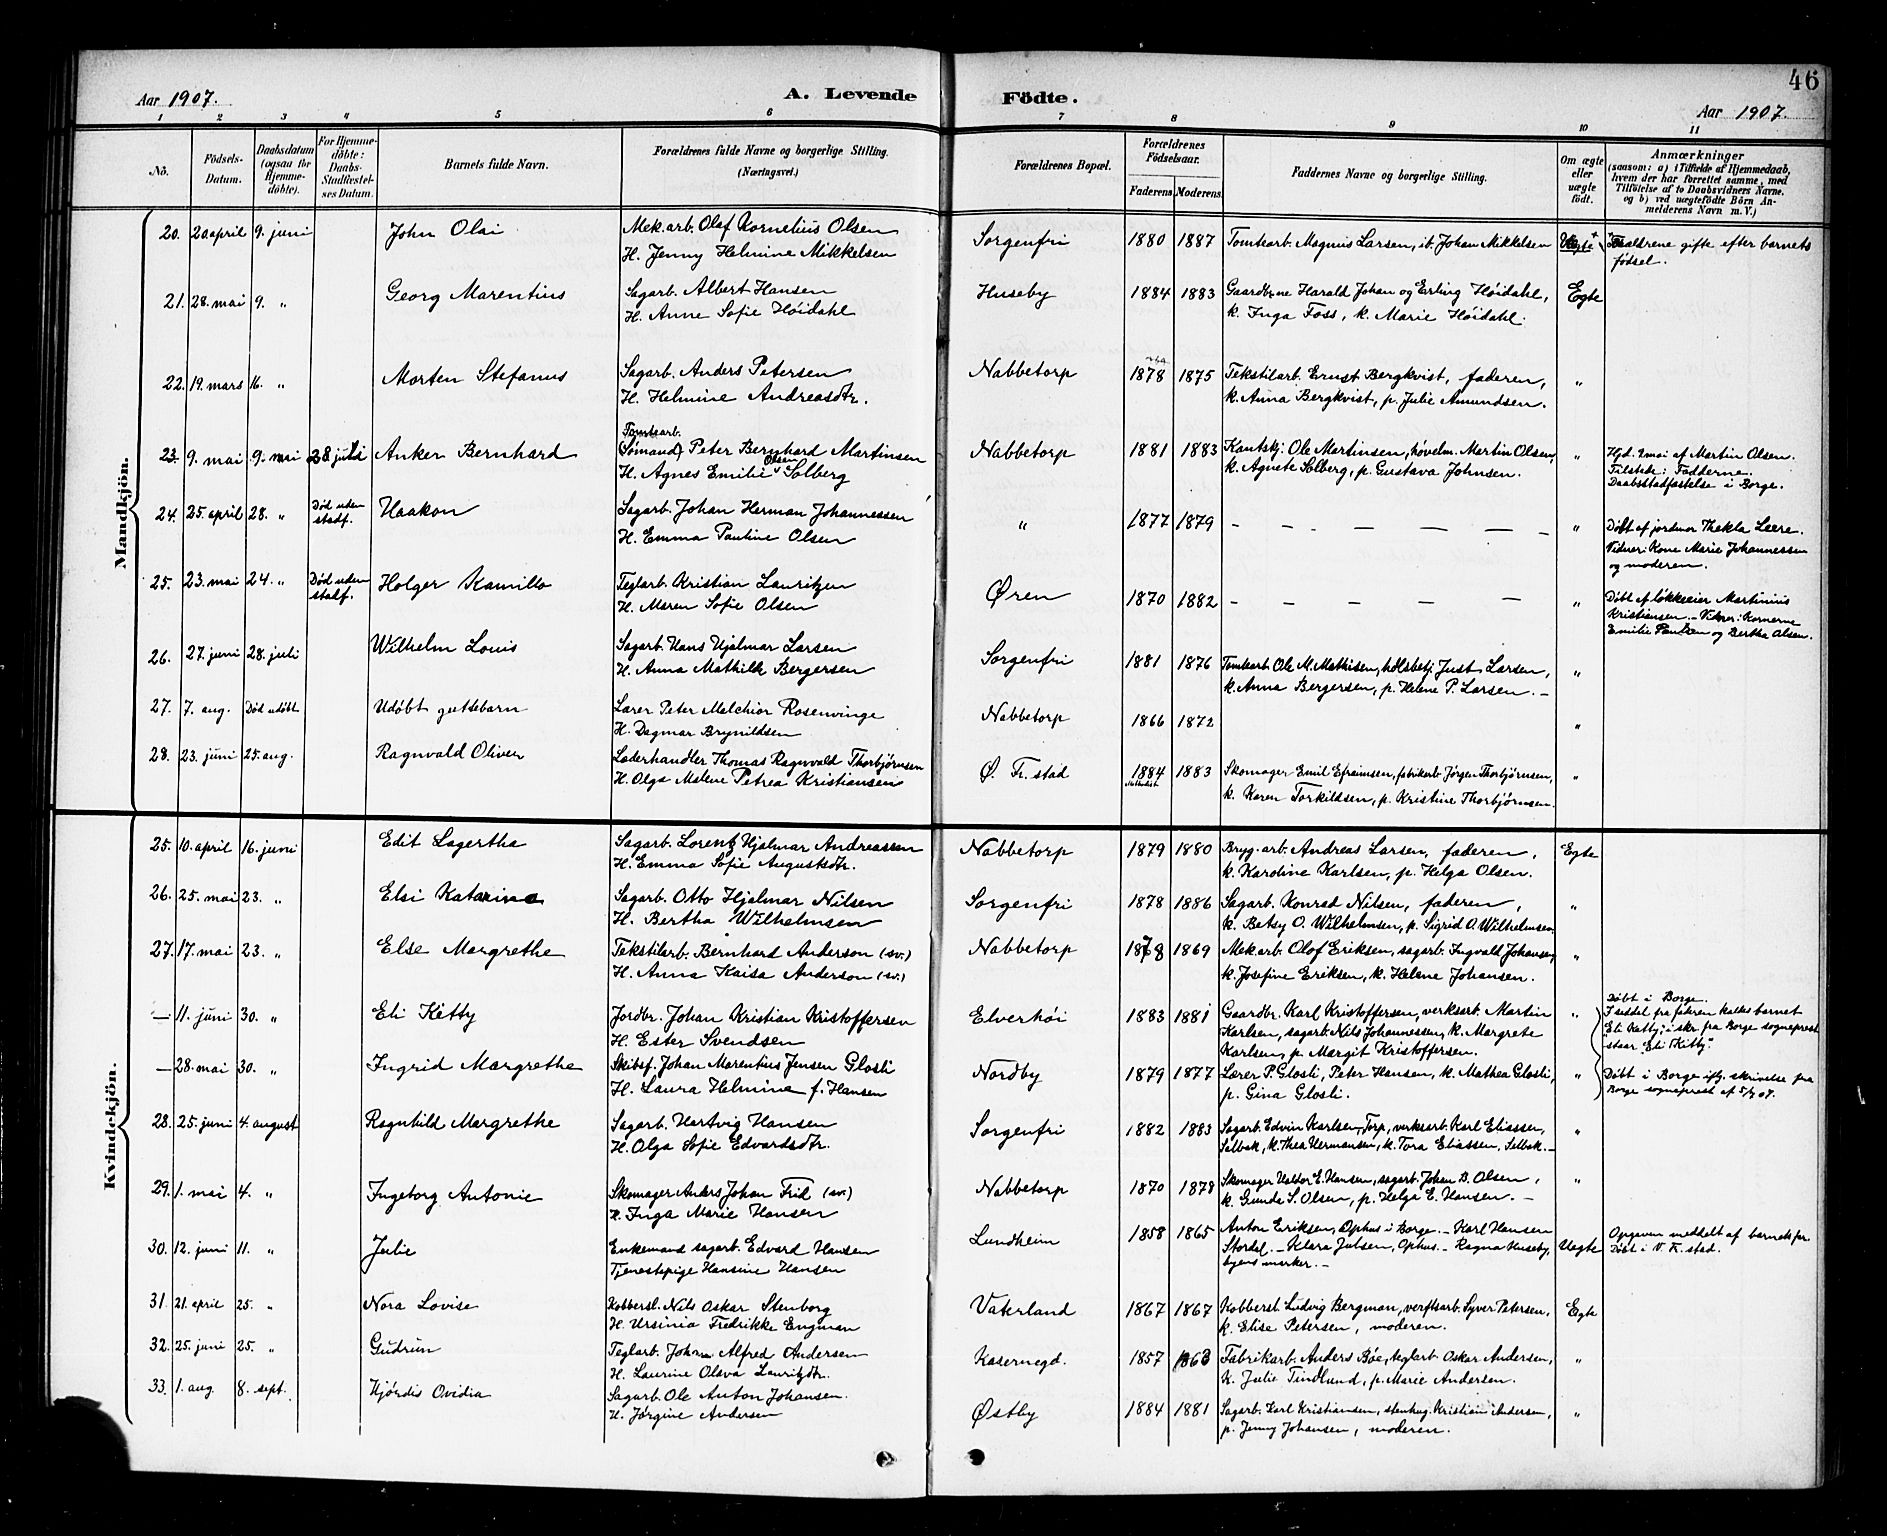 46
Aar 1907.
A. Levende Födte.
Aar 1907.
1 2 3 4 5 6 7 8 9 10 11
No.
Födsels-Datum.
Daabsdatum (ogsaa for Hjemme-döbte).
For Hjemme-döbte: Daabs-Stadfæstel-ses Datum.
Barnets fulde Navn.
Forældrenes fulde Navne og borgerlige Stilling. (Næringsvei.)
Forældrenes Bopæl.
Forældrenes Födselsaar.
Faderens. Moderens.
Faddernes Navne og borgerlige Stilling.
Om ægte eller uægte födt.
Anmærkninger
(saasom: a) i Tilfælde af Hjemmedaab, hvem der har forrettet samme, med Tilföielse af to Daabsvidners Navne, og b) ved uægtefödte Börn An-melderens Navn m. V.)
Mandkjön.
20. 20 april 9. juni John Olai Mek.arb. Olaf Kornelius Olsen
H. Jenny Helmine Mikkelsen
Sorgenfri 1880 1887 Tomtearb. Magnus Larsen, it. Johan Mikkelsen Uegte + Forældrene gifte efter barnets
fødsel.
21. 28. mai 9. " Georg Marentius Sagarb. Albert Hansen
H. Anne Sofie Høidahl
Huseby 1884 1883 Gaardbrne Harald Johan og Erling Høidahl,
k. Inga Foss, k. Marie Høidahl.
Egte
22. 19. mars 16. " Morten Stefanus Sagarb. Anders Petersen
H. Helmine Andreasdtr.
Nabbetorp 1878 1875 Tekstilarb. Ernst Bergkvist, faderen,
k. Anna Bergkvist, p. Julie Amundsen.
"
23. 9. mai 9. mai 28 juli Anker Bernhard Tomtearb.
(Sømand) Peter Bernhard Martinsen
H. Agnes Emilie Olsen Solberg
Nabbetorp 1881 1883 Ole Martinsen, høvelm. Martin Olsen,
k. Agnete Solberg, p. Gustava Johnsen.
" Hjd. 9 mai af Martin Olsen.
Tilstede: Fadderne.
Daabsstadfæstelse i Borge.
24. 25. april 28. " Død uden stadf. Haakon Sagarb. Johan Herman Johannessen
H. Emma Pauline Olsen
" 1877 1879 – – – – – – " Døbt af jordmor Thekla Leere.
Vidner: Kone Marie Johannessen
og moderen.
25. 23. mai 24. " Død uden stadf. Holger Kamillo Teglarb. Kristian Lauritzen
H. Maren Sofie Olsen
Øren 1870 1882 – – – – – " Døbt af løkkeeier Martinius
Kristiansen. – Vidner: Konerne
Emilie Paulsen og Bertha Olsen.
26. 27. juni 28. juli Wilhelm Louis Sagarb. Hans Hjalmar Larsen
H. Anna Mathilde Bergersen
Sorgenfri 1881 1876 Tomtearb. Ole M. Mathisen, Just Larsen,
k. Anna Bergersen, p. Helene P. Larsen. –
"
27. 7. aug. Død udøbt Udøbt guttebarn Lærer Peter Melchior Rosenvinge
H. Dagmar Brynildsen
Nabbetorp 1866 1872 "
28. 23. juni 25. aug. Ragnvald Oliver Læderhandler Thomas Ragnvald Thorbjørnsen
H. Olga Malene Petrea Kristiansen
Ø. Fr.stad 1884 Methodist 1883 Skomager Emil Efraimsen, fabrikarb. Jørgen Thorbjørnsen,
k. Karen Torkildsen, p. Kristine Thorbjørnsen.
"
Kvindekjön.
25. 10. april 16. juni Edit Lagertha Sagarb. Lorentz Hjalmar Andreassen
H. Emma Sofie Augustsdtr.
Nabbetorp 1879 1880 Bryg.arb. Andreas Larsen, faderen,
k. Karoline Karlsen, p. Helga Olsen.
Egte
26. 25. mai 23. " Elsi Katarina Sagarb. Otto Hjalmar Nilsen
H. Bertha Wilhelmsen
Sorgenfri 1878 1886 Sagarb. Konrad Nilsen, faderen,
k. Betsy O. Wilhelmsen, p. Sigrid O. Wilhelmsen.
"
27. 17. mai 23. " Else Margrethe Tekstilarb. Bernhard Anderson (sv.)
H. Anna Kaisa Anderson (sv.)
Nabbetorp 1878 1869 Mek.arb. Olof Eriksen, sagarb. Ingvald Johansen,
k. Josefine Eriksen, k. Helene Johansen.
"
– 11. juni 30. " Eli Kitty Jordbr. Johan Kristian Kristoffersen
H. Ester Svendsen
Elverhøi 1883 1881 Gaardbr. Karl Kristoffersen, verksarb. Martin
Karlsen, sagarb. Nils Johannessen, k. Margrete
Karlsen, p. Margit Kristoffersen.
" Døbt i Borge.
I seddel fra faderen kaldes barnet
Eli Katty; i skr. fra Borge sogneprest
staar "Eli Kitty".
– 28. mai 30. " Ingrid Margrethe Skibsf. Johan Marentius Jensen Glosli
H. Laura Helmine f. Hansen
Nordby 1879 1877 Lærer P. Glosli, Peter Hansen, k. Mathea Glosli,
p. Gina Glosli.
" Døbt i Borge iflg. skrivelse fra
Borge sogneprest af 5/7 07.
28. 25. juni 4. august Ragnhild Margrethe Sagarb. Hartvig Hansen
H. Olga Sofie Edvardsdtr.
Sorgenfri 1882 1883 Sagarb. Edvin Karlsen, Torp, verksarb. Karl Eliassen,
Selbak, k. Thea Hermansen, k. Tora Eliassen, Selbak. –
"
29. 1. mai 4. " Ingeborg Antonie Skomager Anders Johan Frid (sv.)
H. Inga Marie Hansen
Nabbetorp 1870 1878 Skomager Haldor E. Hansen, sagarb. Johan B. Olsen,
k. Gunda S. Olsen, p. Helga E. Hansen. –
"
30. 12. juni 11. " Julie Enkemand sagarb. Edvard Hansen
Tjenestepige Hansine Hansen
Lundheim 1858 1865 Anton Eriksen, Ophus i Borge. – Karl Hansen
Stordal. – Klara Julsen, Ophus. – Ragna Huseby,
byens marker. –
Uegte Opgaven meddelt af barnets far
Døbt i V. Fr.stad.
31. 21. april 25. " Nora Lovise Kobbersl. Nils Oskar Stenborg
H. Ursinia Fredrikke Engman
Vaterland 1867 1867 Kobbersl. Ludvig Bergman, verftsarb. Syver Petersen,
k. Elise Petersen, moderen.
Egte
32. 25. juni 25. " Gudrun Teglarb. Johan Alfred Andersen
H. Laurine Olava Lauritzdtr.
Kasernegd. 1857 1863 Fabrikarb. Anders Bøe, teglarb. Oskar Andersen,
k. Julie Tindlund, p. Marie Andersen.
"
33. 1. aug 8. sept. Hjørdis Ovidia Sagarb. Ole Anton Johansen.
H. Jørgine Andersen
Østby 1884 1881 Sagarb. Karl Kristiansen, stenhug. Kristian Andersen,
p. Jenny Johansen, moderen.
"